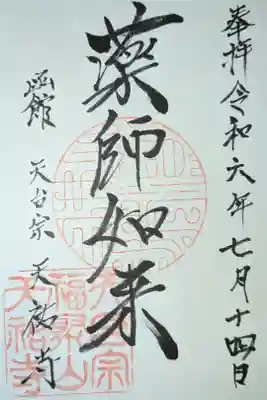 奉拝令和六年七月十四日
薬師如来
函館
天台宗 天祐寺
天台宗
福聚山
天祐寺